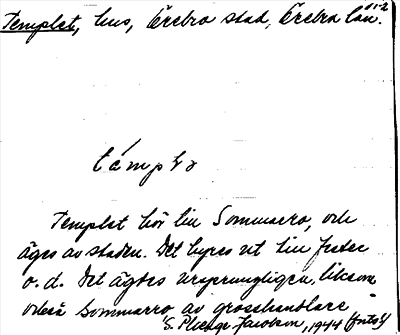 Templet, hus, Örebro stad, Örebro län.
támplə
Templet hör till Sommarro, och
äges av staden. Det hyres ut till fester
o. d. Det ägdes ursprungligen, liksom
också Sommarro av grosshandlare
S. Plenge Jacobson, 1944